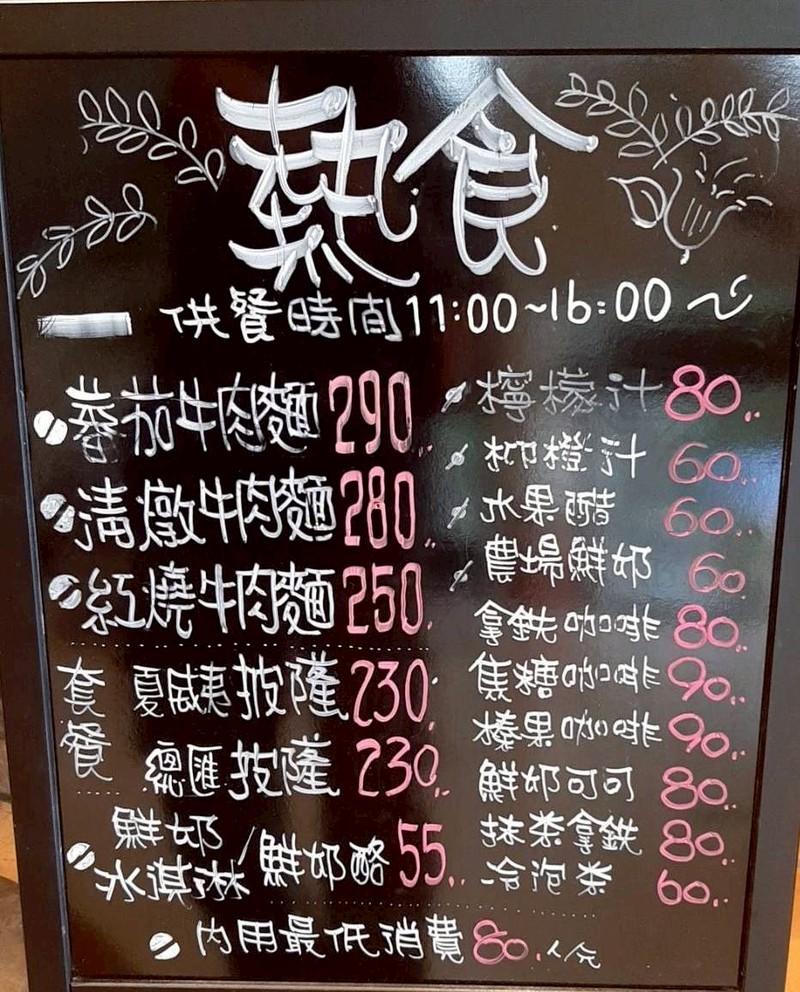 熱食
供餐時間11:00~16:00~
蕃茄牛肉麵290
清燉牛肉麵280
紅燒牛肉麵250
套餐
夏威夷披薩230
總匯披薩230
鮮奶
冰淇淋/鮮奶酪55
檸檬汁80
柳橙汁60
水果醋60
農場鮮奶60
拿鉄咖啡80
焦糖咖啡90
榛果咖啡90
鮮奶可可80
抹茶拿鉄80
冷泡茶60
內用最低消費80.人/元